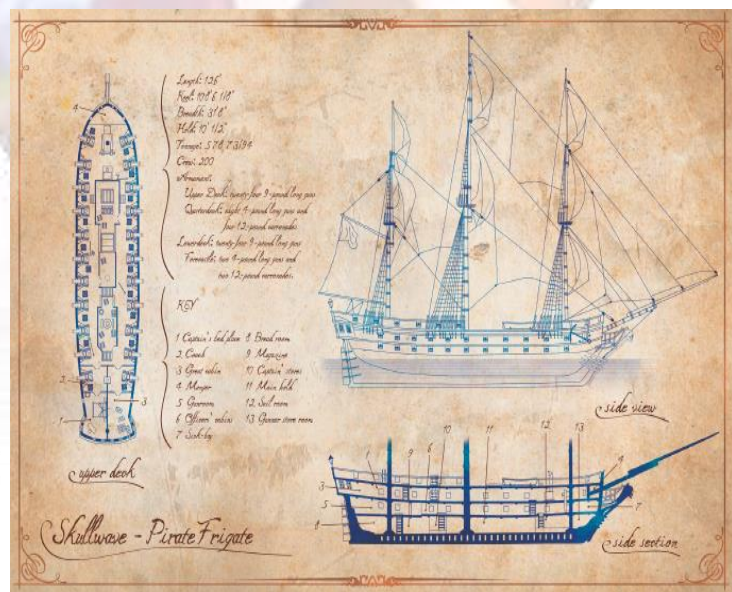 Length: 126'
Keel: 108' 6 1/8"
Breadth: 31' 8"
Hold: 10' 1/2"
Tonnage: 578 73/94
Crew: 200
Armament:
Upper Deck: twenty-four 9-pound long guns
Quarterdeck: eight 4-pound long guns and
four 12-pound carronades
Lowerdeck: twenty-four 9-pound long guns
Forecastle: two 4-pound long guns and
two 12-pound carronades.
KEY
1 Captain's bed place
2 Coach
3 Great cabin
4 Manger
5 Gunroom
6 Officers' cabins
7 Sick-bay
8 Bread room
9 Magazine
10 Captain' stores
11 Main hold
12 Sail room
13 Gunner store room
4
2
3
1
upper deck
side view
10
13
1
9
6
11
12
4
3
5
7
8
side section
Skullwave - Pirate Frigate